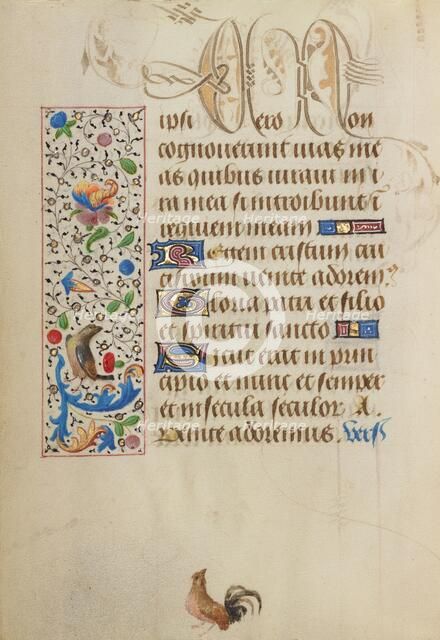 ipsi vero non
cognoverunt vias me
as quibus iuravi in i
ra mea si introibunt ī
requiem meam
Regem cristum cru
cifixum venite adorem
Gloria patri et filio
et spiritui sancto
Sicut erat in prin
cipio et nunc et semper
et in secula seculor. A
Venite adoremus. Vers